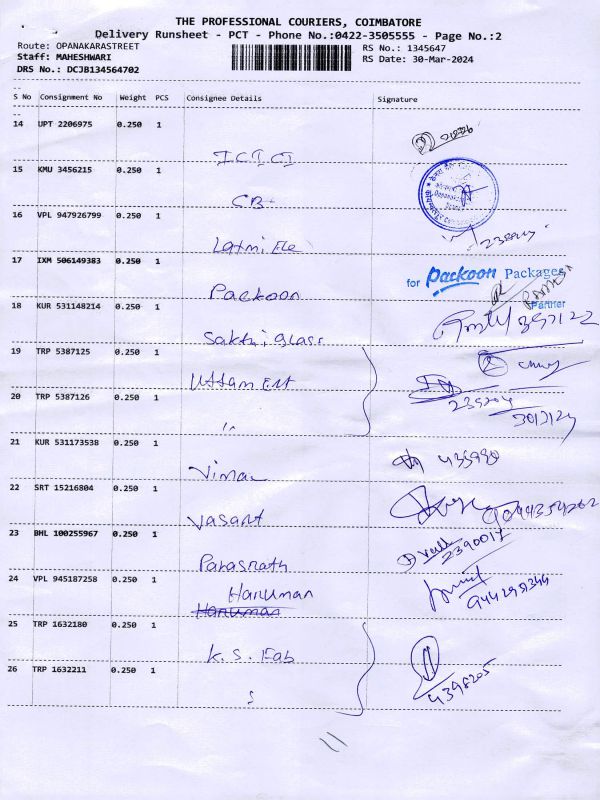 THE PROFESSIONAL COURIERS, COIMBATORE
Delivery Runsheet - PCT - Phone No.:0422-3505555 - Page No.:2
Route: OPANAKARASTREET
RS No.: 1345647
Staff: MAHESHWARI
RS Date: 30-Mar-2024
DRS No.: DCJB134564702
S No Consignment No Weight PCS Consignee Details Signature
14 UPT 2206975 0.250 1
ICICI
15 KMU 3456215 0.250 1
CB
16 VPL 947926799 0.250 1
Laxmi Ele
17 IXM 506149383 0.250 1
for Packoon Packages
Packoon
Partner
18 KUR 531148214 0.250 1
Sakthi glass
19 TRP 5387125 0.250 1
Uttam Ent
20 TRP 5387126 0.250 1
"
21 KUR 531173538 0.250 1
Vimal
22 SRT 15216804 0.250 1
Vasant
23 BHL 100255967 0.250 1
2390017
Parasnath
24 VPL 945187258 0.250 1
Hanuman
Hanuman
25 TRP 1632180 0.250 1
K.S. Fab
26 TRP 1632211 0.250 1
4398205